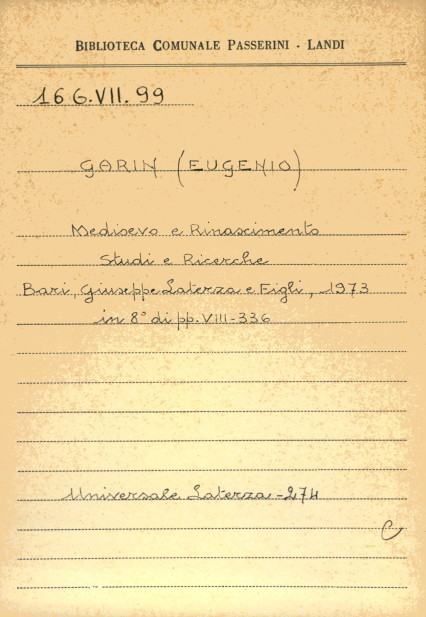 BIBLIOTECA COMUNALE PASSERINI - LANDI
16 G.VII. 99
GARIN (EUGENIO)
Medioevo e Rinascimento
Studi e Ricerche
Bari, Giuseppe Laterza e Figli, 1973
in 8° di pp. VIII-336
Universale Laterza - 274
C